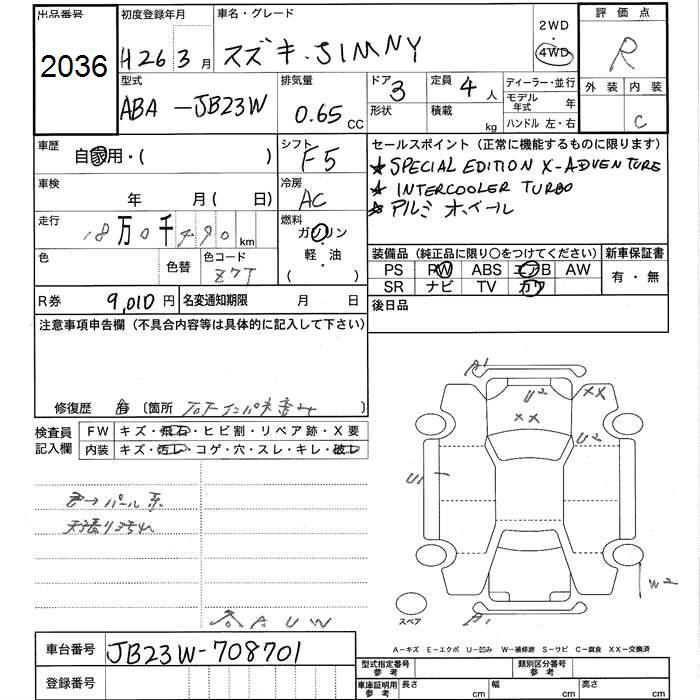 出品番号 初度登録年月 車名・グレード 2WD 評価点
2036 H26 3月 スズキ.JIMNY 4WD R
型式 排気量 ドア 定員 ディーラー・並行 外装 内装
ABA-JB23W 0.65 CC 3 4人 モデル年式 年 C
形状 積載 kg ハンドル 左・右
車歴 シフト セールスポイント (正常に機能するものに限ります)
自家用・( ) F5 ★ SPECIAL EDITION X-ADVENTURE
車検 冷房 ★ INTERCOOLER TURBO
年 月(日) AC ★ アルミホイール
走行 燃料
18万0千490km ガソリン
色 色替 色コード 軽・油 装備品 (純正品に限り○をつけてください) 新車保証書
Z7T ( ) PS PW ABS エアB AW 有・無
SR ナビ TV カワ
R券 9,010円 名変通知期限 月 日 後日品
注意事項申告欄 (不具合内容等は具体的に記入して下さい)
A1
U2 XX
XX
U2
U1
修復歴 有 〔箇所 〕
検査員記入欄 FW キズ・飛石・ヒビ割・リペア跡・X要
内装 キズ・汚レ・コゲ・穴・スレ・キレ・破レ
色→パール系
W2
A1
スペア
各AUW
A-キズ E-エクボ U-凹み W-補修跡 S-サビ C-腐食 XX-交換済
車台番号 JB23W-708701
登録番号
型式指定番号 参考 類別区分番号 参考
車庫証明用 参考 長さ cm 幅 cm 高さ cm